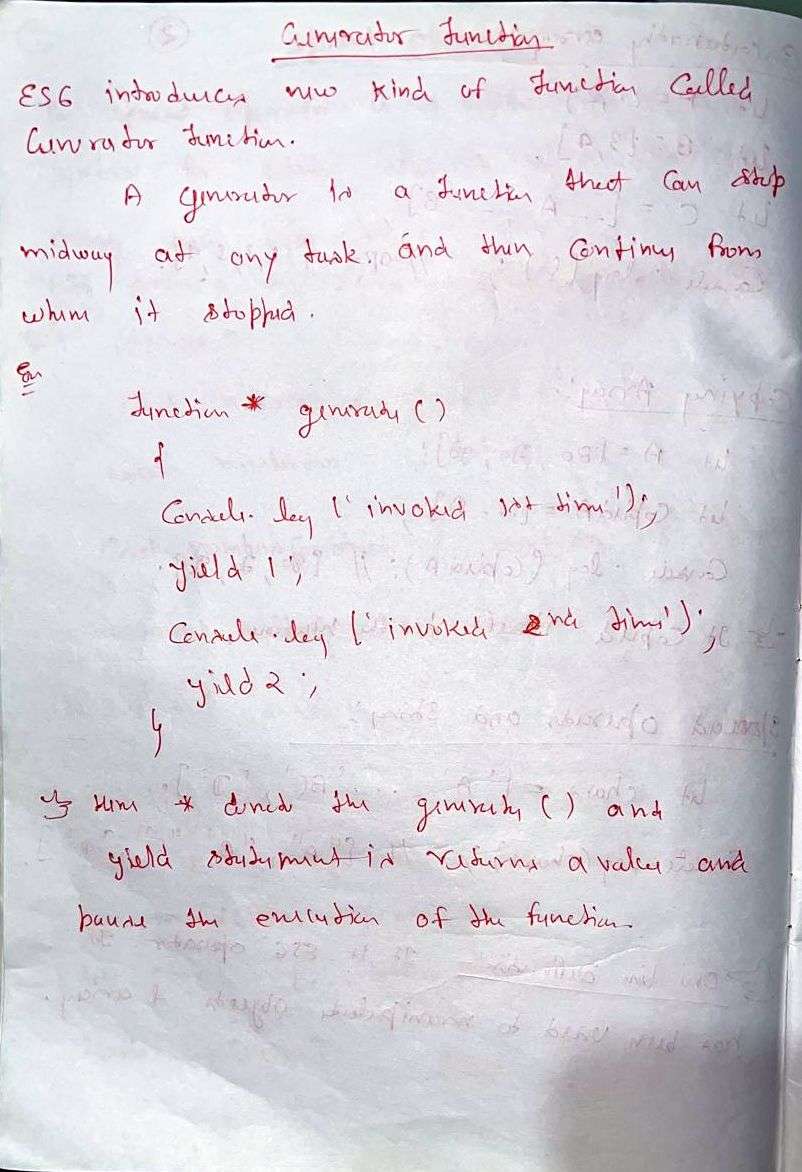 Generator Function
ES6 introduces new kind of function called
Generator function.
A generator is a function that can stop
midway at any task and then continues from
where it stopped.
Ex
function * generate ()
{
Console.log ('invoked 1st time');
yield 1;
Console.log ('invoked 2nd time');
yield 2;
}
Here * the generate () and
yield statement is returns a value and
pause the execution of the function.